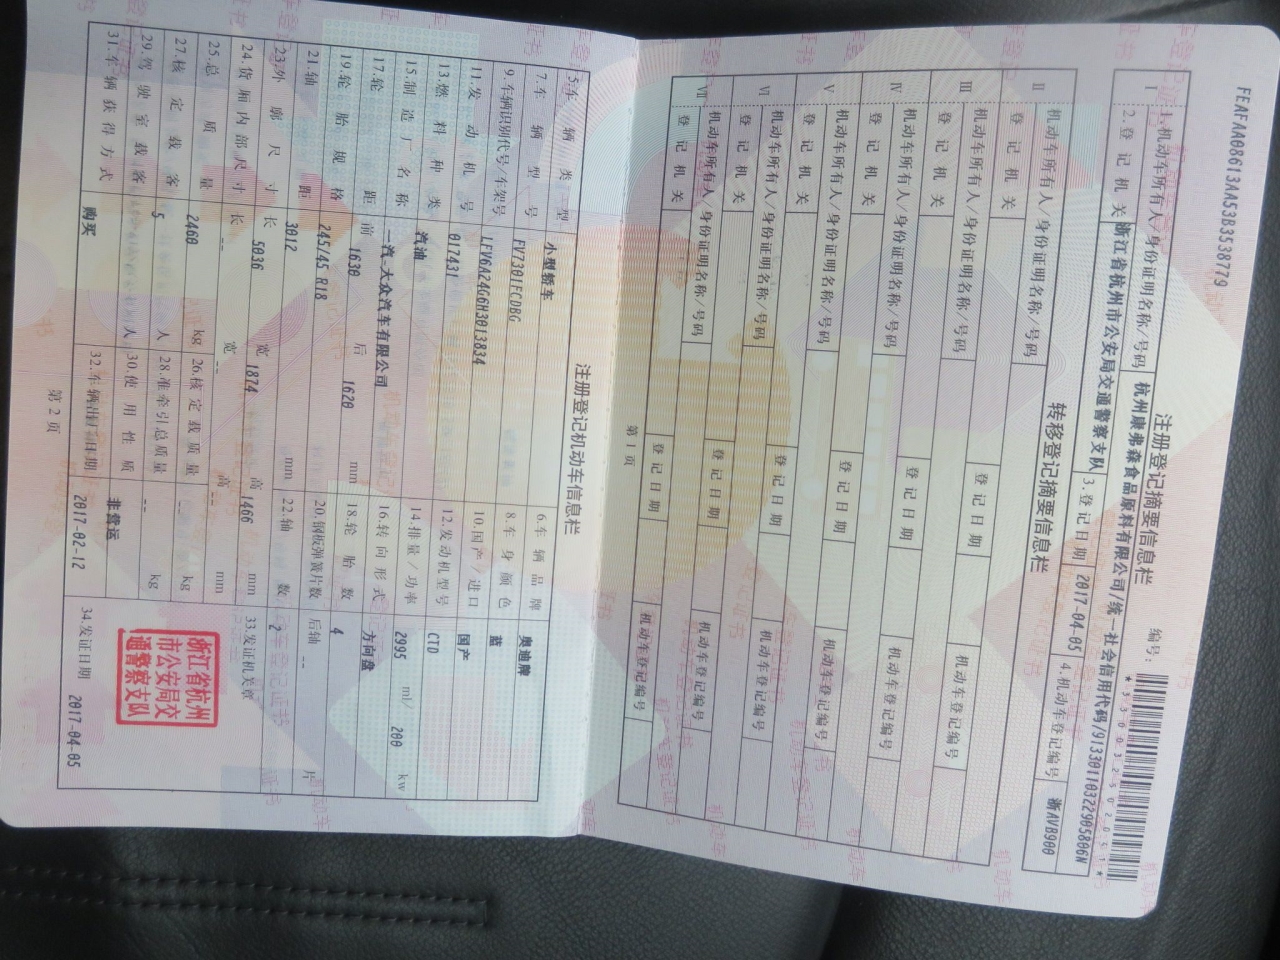 FEAFAA08613AA53B3538779
注册登记摘要信息栏
编号:
*330032502051*
I
1.机动车所有人/身份证明名称/号码 杭州康弗森食品原料有限公司/统一社会信用代码/91330110322905806N
2.登记机关 浙江省杭州市公安局交通警察支队 3.登记日期 2017-04-05 4.机动车登记编号 浙AVB900
转移登记摘要信息栏
II 机动车所有人/身份证明名称/号码
登记机关 登记日期 机动车登记编号
III 机动车所有人/身份证明名称/号码
登记机关 登记日期 机动车登记编号
IV 机动车所有人/身份证明名称/号码
登记机关 登记日期 机动车登记编号
V 机动车所有人/身份证明名称/号码
登记机关 登记日期 机动车登记编号
VI 机动车所有人/身份证明名称/号码
登记机关 登记日期 机动车登记编号
VII 机动车所有人/身份证明名称/号码
登记机关 登记日期 机动车登记编号
第1页
注册登记机动车信息栏
5.车辆类型 小型轿车 6.车辆品牌 奥迪牌
7.车辆型号 FV7301FCDBG 8.车身颜色 蓝
9.车辆识别代号/车架号 LFV6A24G6H3013834 10.国产/进口 国产
11.发动机号 017431 12.发动机型号 CTD
13.燃料种类 汽油 14.排量/功率 2995 ml/ 200 kw
15.制造厂名称 一汽-大众汽车有限公司 16.转向形式 方向盘
17.轮距 前 1630 后 1620 mm 18.轮胎数 4
19.轮胎规格 245/45 R18 20.钢板弹簧片数 后轴 -- 片
21.轴距 3012 mm 22.轴数 2
23.外廓尺寸 长 5036 宽 1874 高 1466 mm
33.发证机关章
24.货厢内部尺寸 长 -- 宽 -- 高 -- mm
25.总质量 2460 kg 26.核定载质量 -- kg
27.核定载客 5 人 28.准牵引总质量 -- kg
29.驾驶室载客 人 30.使用性质 非营运
31.车辆获得方式 购买 32.车辆出厂日期 2017-02-12
浙江省杭州
市公安局交
通警察支队
34.发证日期 2017-04-05
第2页